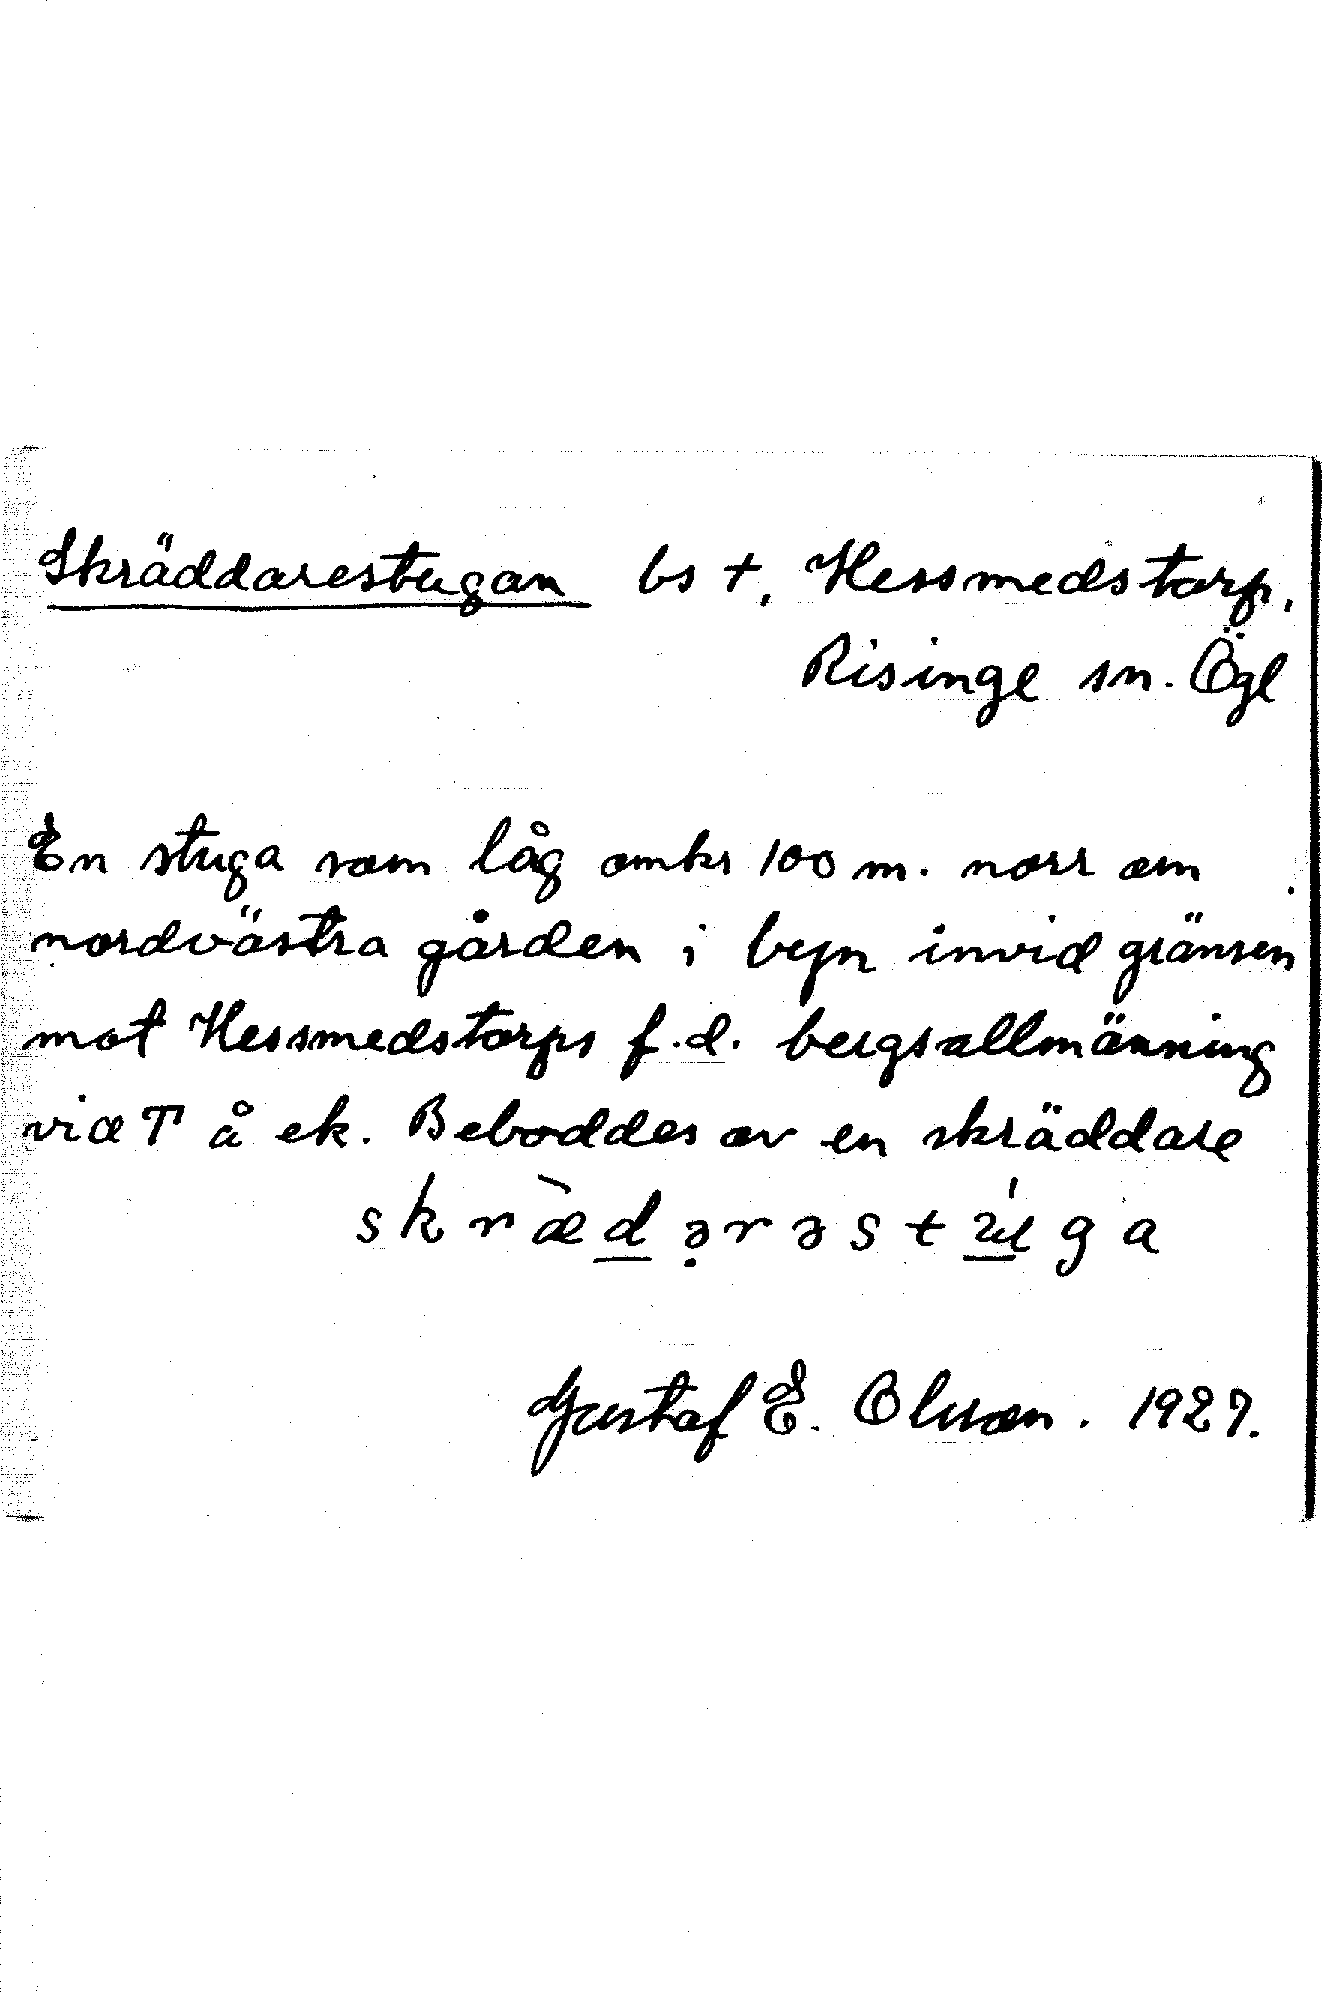 Skräddarestugan bs †, Hessmedstorp,
Risinge sn. Ögl
En stuga som låg omkr 100 m. norr om
nordvästra gården i byn invid gränsen
mot Hessmedstorps f.d. bergsallmänning
vid T å ek. Beboddes av en skräddare
skræ̀də̣rəstúga
Gustaf E. Olsson. 1927.